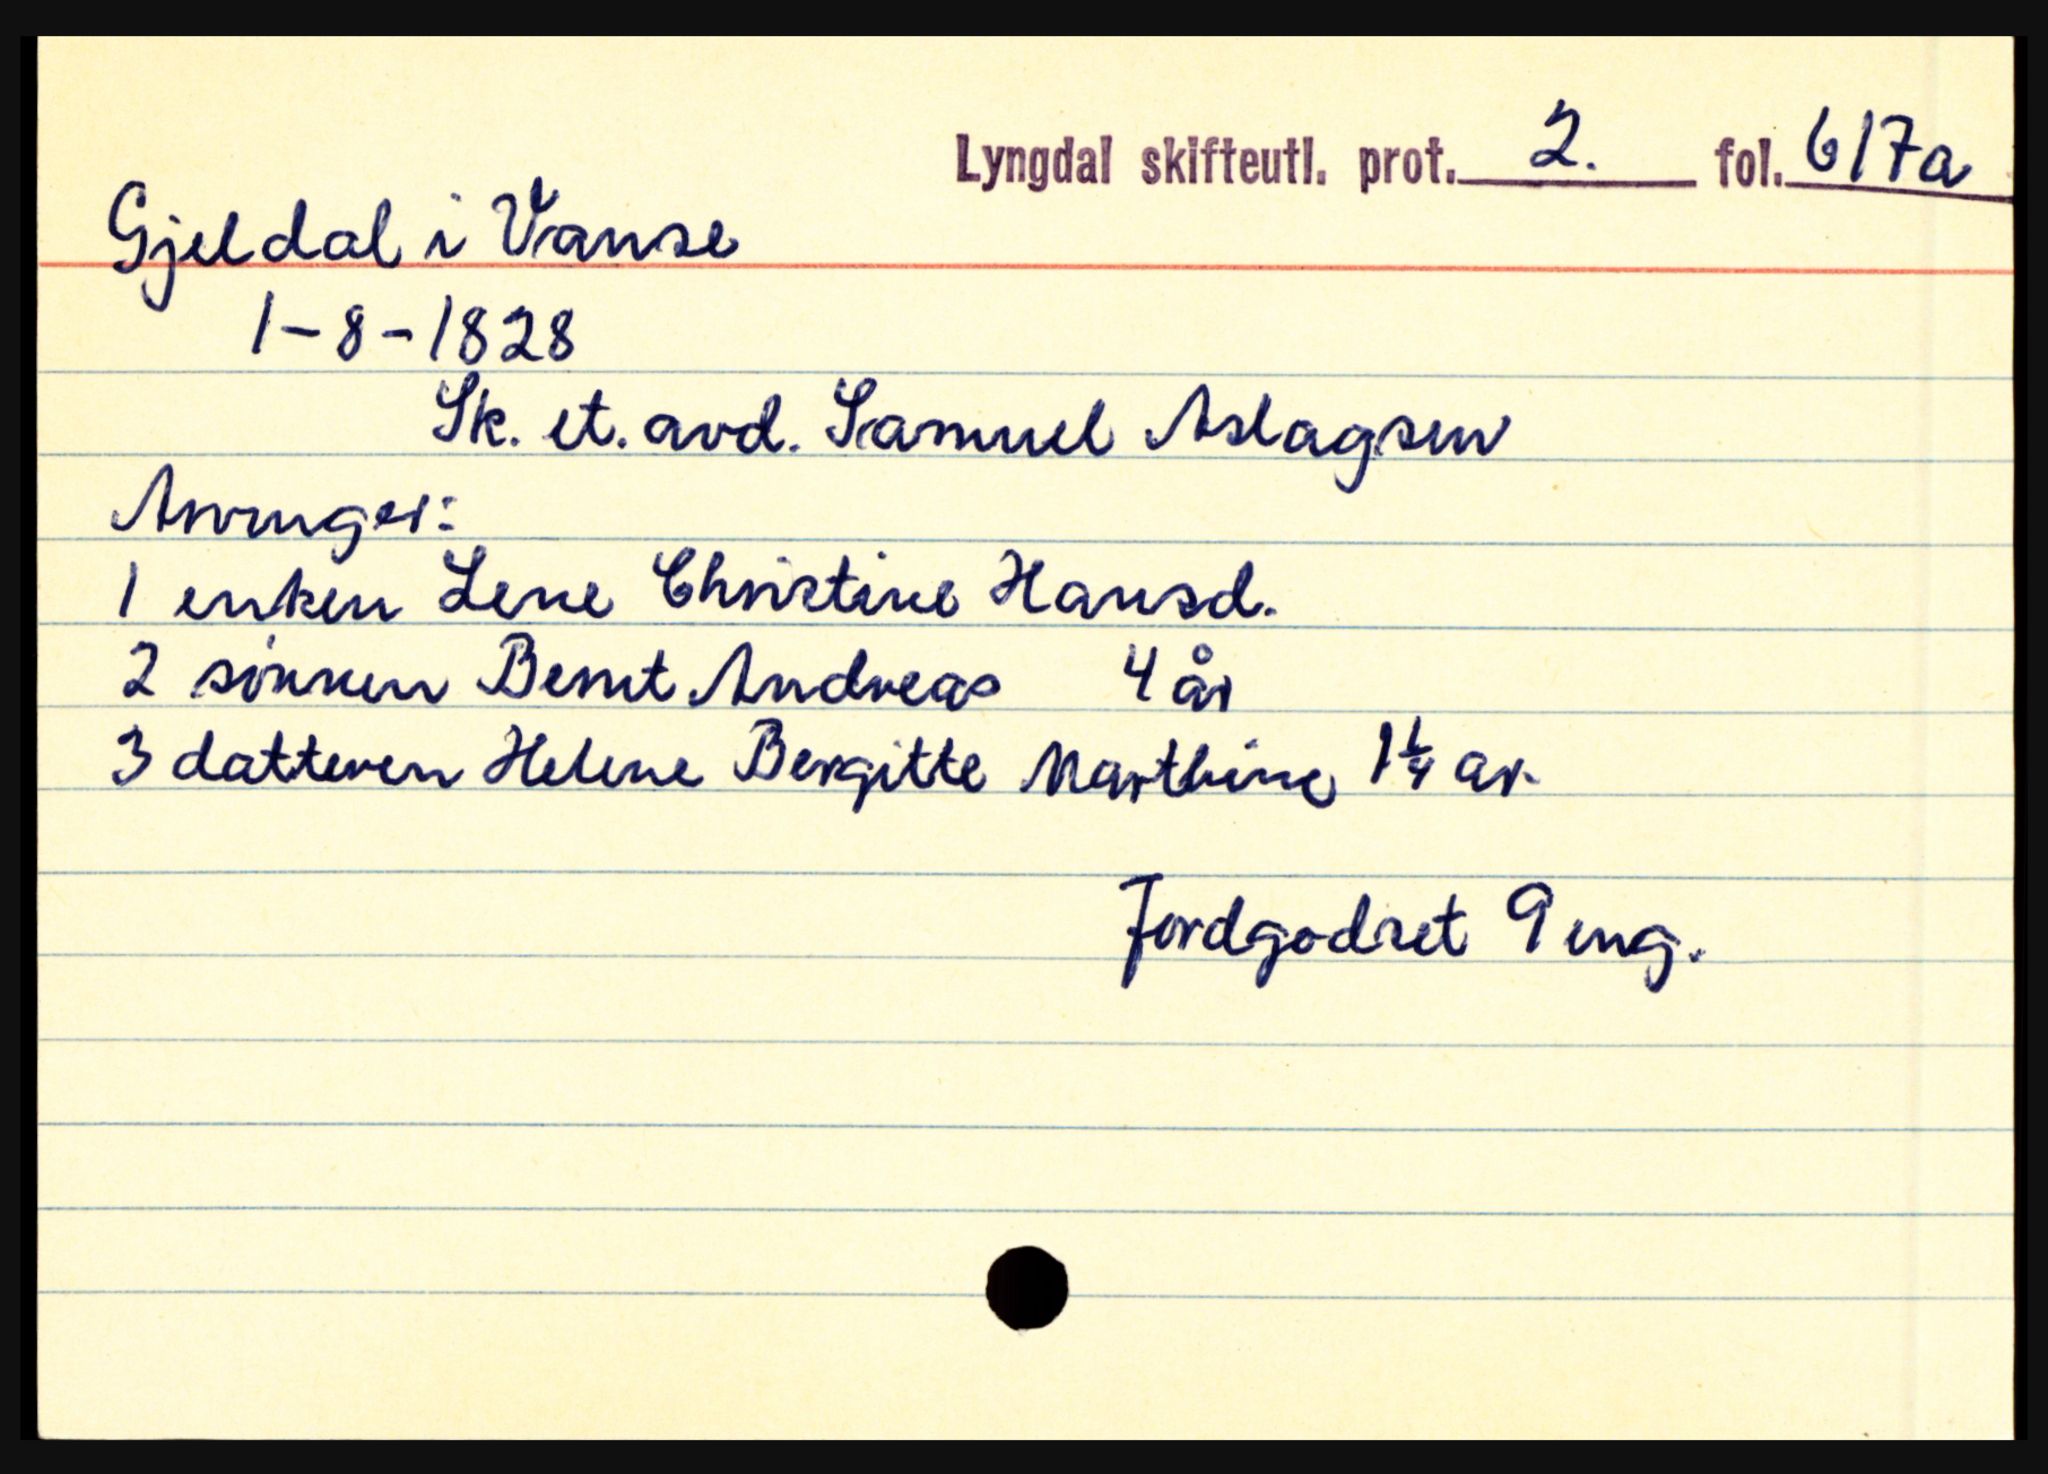 Lyngdal skifteutl. prot. 2. fol. 617a
Gjeldal i Vanse
1-8-1828
Sk. et. avd. Samuel Aslagsen
Arvinger:
1 enken Lene Christine Hansd.
2 sönnen Bernt Andreas 4 år
3 datteren Helene Bergitte Marthine 1 1/4 ar.
Jordgodset 9 eng.